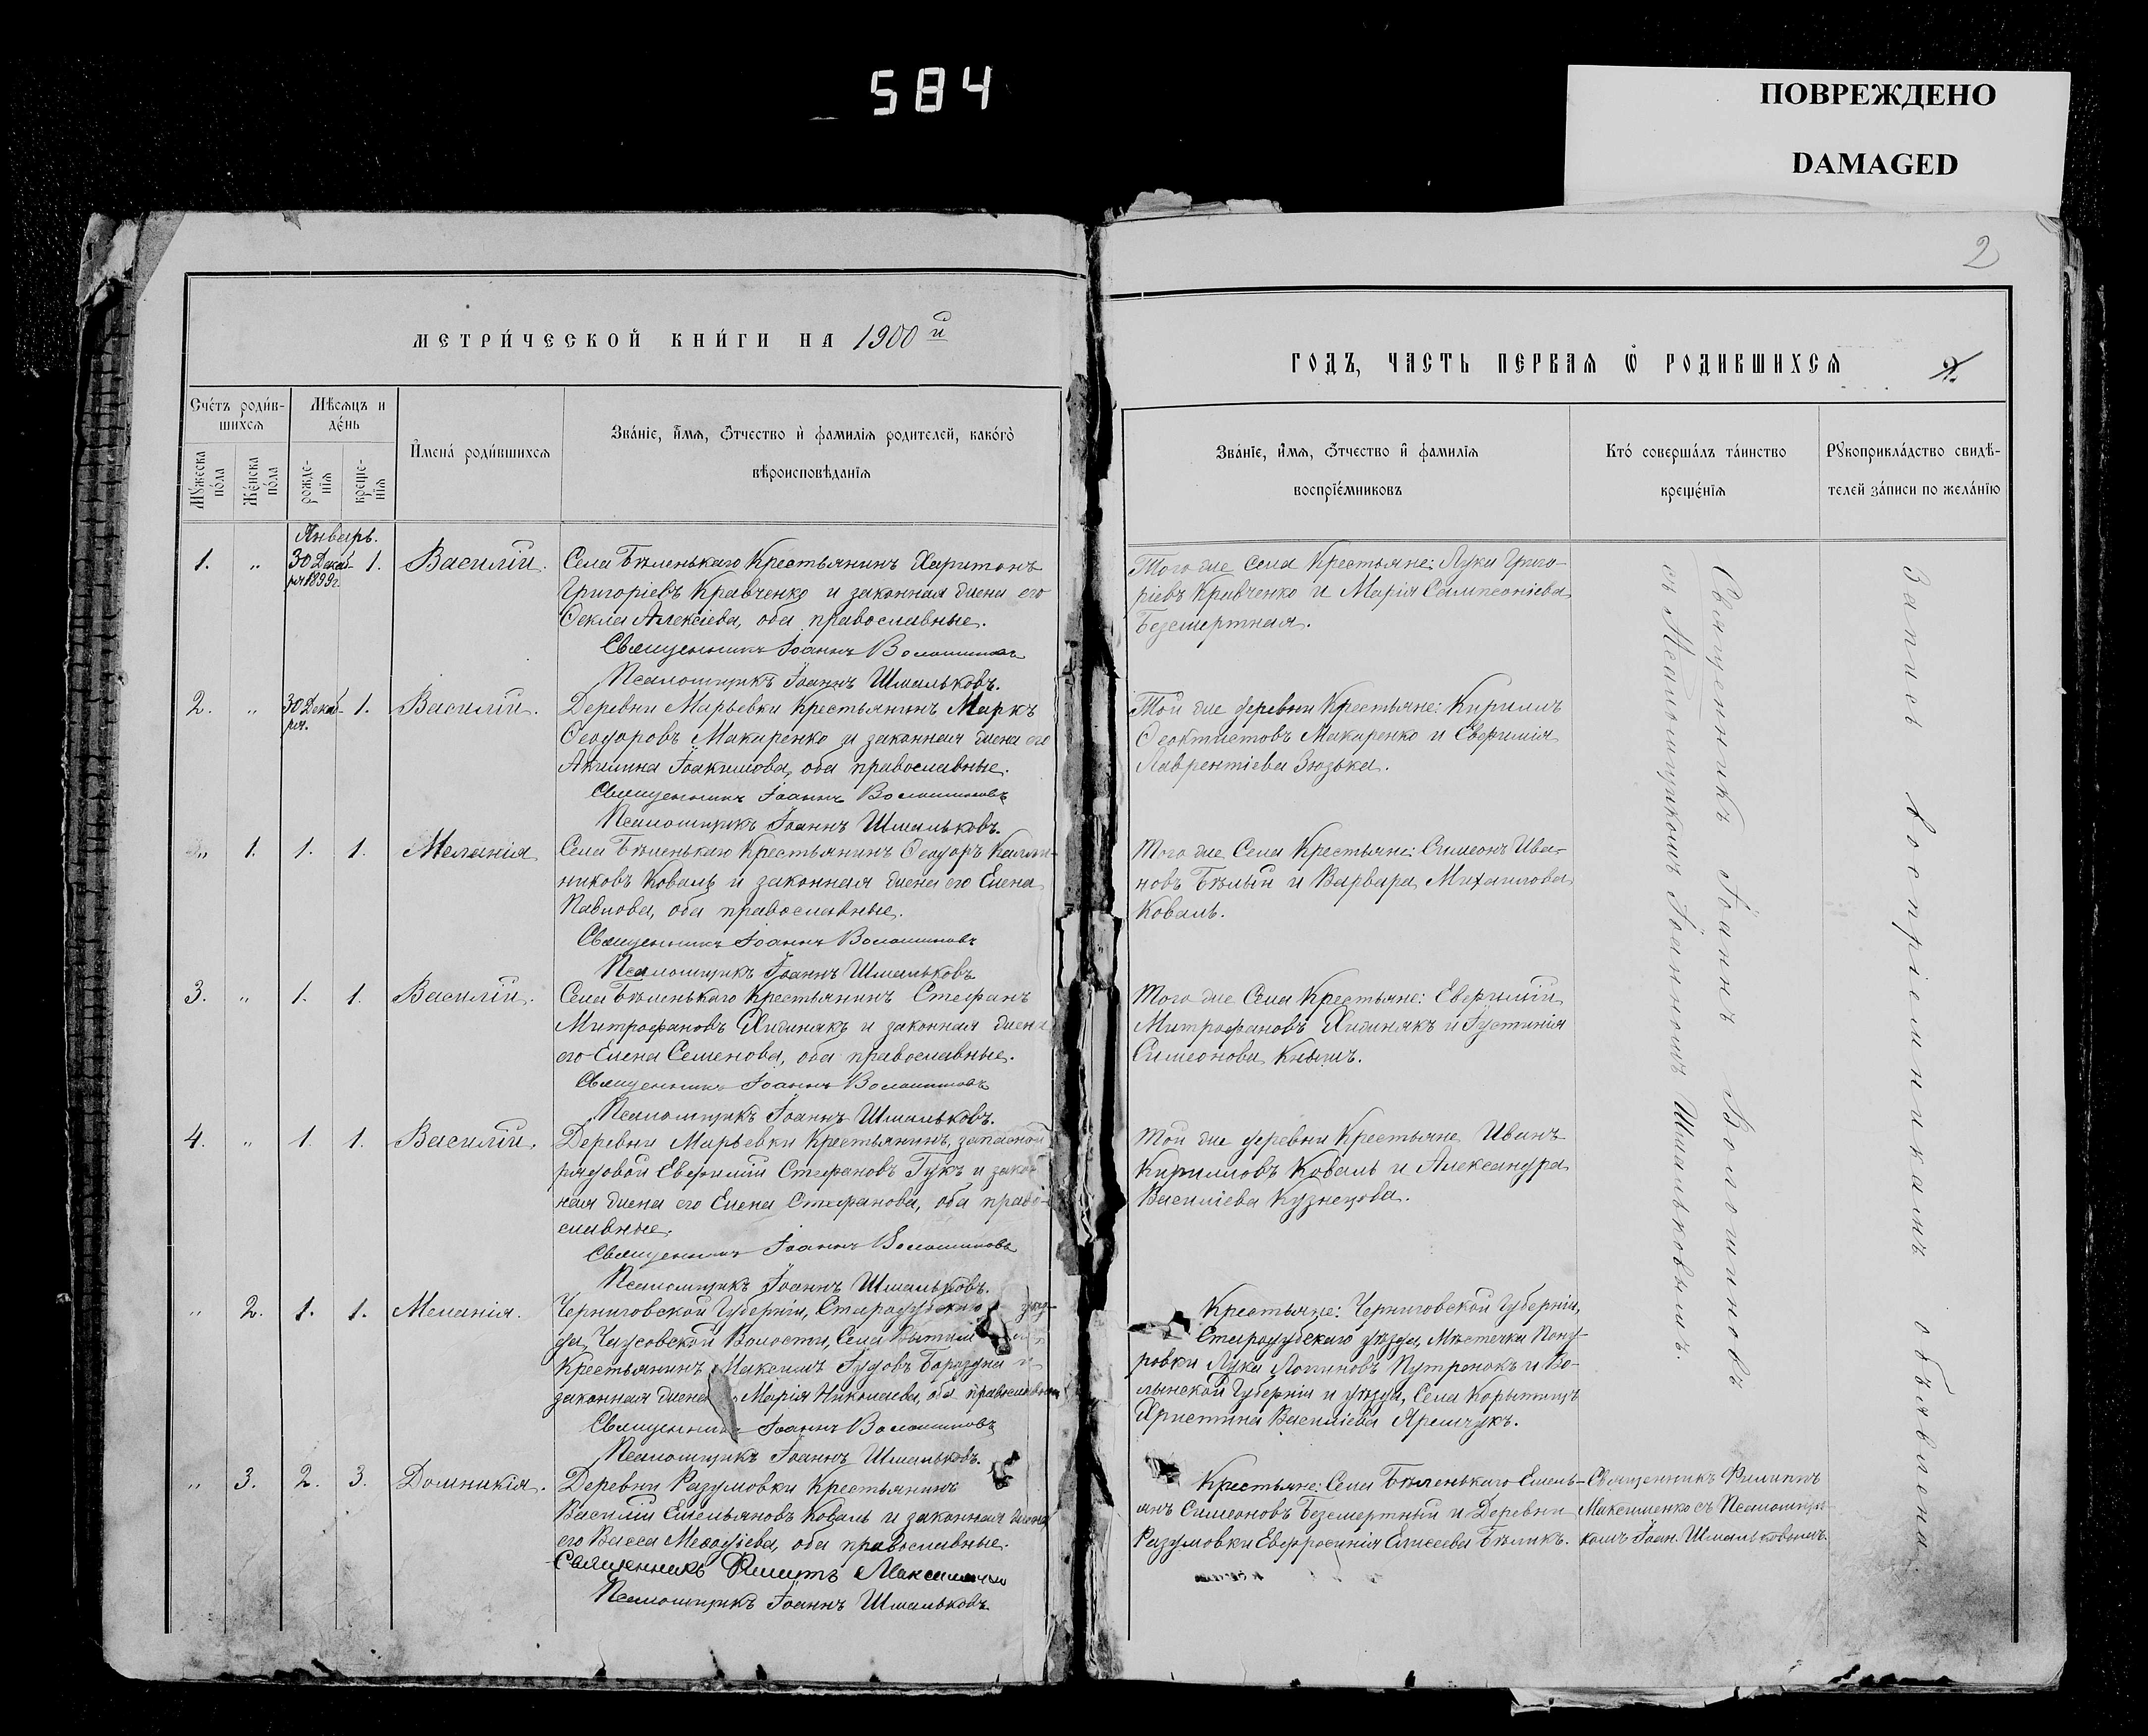 584
ПОВРЕЖДЕНО
DAMAGED
2
МЕТРИ́ЧЕСКОЙ КНИ́ГИ НА 1900й
Сче́тъ роди́в-
шихсѧ
Мѣсѧцъ и
де́нь
Мꙋжеска
по́ла
Же́нска
по́ла
рожде-
нїѧ
креще-
нїѧ
И҆мена̀ роди́вшихсѧ
Зва́нїе, и҆́мѧ, ѻ҆́тчество и҆ фамилїѧ родителей, како́гѡ
вѣроисповѣ́данїѧ
Январь.
1. „ 30 Декаб- 1. Василій. Села Бѣленькаго Крестьянинъ Харитонъ
ря 1899г. Григоріевъ Кравченко и законная жена его
Ѳекла Алексіева, оба православные.
Священникъ Іоаннъ Волошиновъ
Псаломщикъ Іоаннъ Шмальковъ.
2. „ 30 Декаб- 1. Василій. Деревни Марьевки Крестьянинъ Маркъ
ря. Ѳеодоровъ Макаренко и законная жена его
Акилина Іоакимова, оба православные.
Священникъ Іоаннъ Волошиновъ
Псаломщикъ Іоаннъ Шмальковъ.
„ 1. 1. 1. Меланія Села Бѣленькаго Крестьянинъ Ѳеодоръ Калли-
никовъ Коваль и законная жена его Елена
Павлова, оба православные.
Священникъ Іоаннъ Волошиновъ
Псаломщикъ Іоаннъ Шмальковъ.
3. „ 1. 1. Василій. Села Бѣленькаго Крестьянинъ Стефанъ
Митрофановъ Хижнякъ и законная жена
его Елена Семенова, оба православные.
Священникъ Іоаннъ Волошиновъ
Псаломщикъ Іоаннъ Шмальковъ.
4. „ 1. 1. Василій. Деревни Марьевки Крестьянинъ, запасной
рядовой Евфимій Стефановъ Гукъ и закон
ная жена его Елена Стефанова, оба право-
славные.
Священникъ Іоаннъ Волошиновъ
Псаломщикъ Іоаннъ Шмальковъ.
„ 2. 1. 1. Меланія. Черниговской Губерніи, Стародубскаго уѣз-
да, Волости, Села
Крестьянинъ Максимъ Іудовъ Бороздна и
законная жена Марія Николаева, оба православные
Священникъ Іоаннъ Волошиновъ
Псаломщикъ Іоаннъ Шмальковъ.
„ 3. 2. 3. Домникія. Деревни Разумовки Крестьянинъ
Василій Емельяновъ Коваль и законная жена
его Васса Меѳодіева, оба православные.
Священникъ Филиппъ Максименко
Псаломщикъ Іоаннъ Шмальковъ.
ГОДЪ, ЧАСТЬ ПЕРВАЯ Ѡ҆ РОДИВШИХСѦ
2.
Зва́нїе, и҆́мѧ, ѻ҆́тчество и҆ фамилїѧ
воспрїе́мниковъ
Кто́ соверша́лъ та́инство
креще́нїѧ
Рꙋкоприкла́дство свидѣ́-
телей за́писи по жела́нїю
Того же Села Крестьяне: Лука Григо-
ріевъ Кравченко и Марія Сампсоніева
Безсмертная.
Той же деревни Крестьяне: Кириллъ
Ѳеоктистовъ Макаренко и Евфимія
Лаврентіева Зюзька.
Того же Села Крестьяне: Симеонъ Ива-
новъ Бѣлый и Варвара Михаилова
Коваль.
Того же Села Крестьяне: Евфимій
Митрофановъ Хижнякъ и Іустинія
Симеонова Кнышъ.
Той же деревни Крестьяне Иванъ
Кирилловъ Коваль и Александра
Василіева Кузнецова.
Крестьяне: Черниговской Губерніи,
Стародубскаго уѣзда, Мѣстечка Пону-
ровки Лука Логиновъ Путренокъ и Во-
лынской Губерніи и уѣзда, Села Корытищъ
Христина Василіева Яремчукъ.
Крестьяне: Села Бѣленькаго Емель-
янъ Симеоновъ Безсмертный и Деревни
Разумовки Евфросинія Елисеева Бѣликъ.
Священникъ Іоаннъ Волошиновъ
съ Псаломщикомъ Іоанномъ Шмальковымъ.
Священникъ Филиппъ
Максименко съ Псаломщи-
комъ Іоан. Шмальковымъ.
Запись воспріемникамъ объявлена.